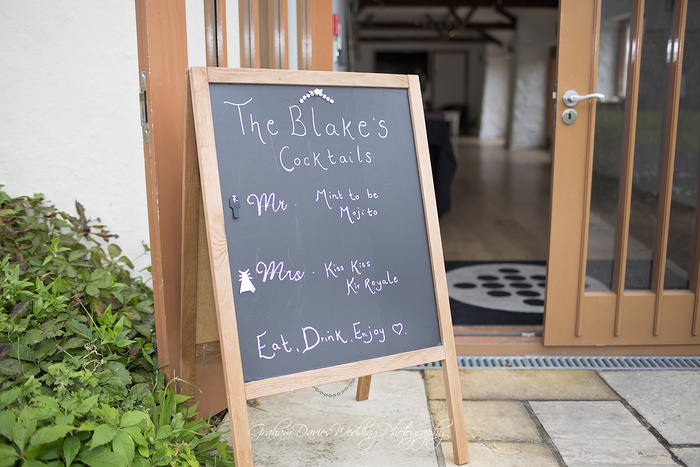 The Blake's
Cocktails
Mr. Mint to be
Mojito
Mrs. Kiss Kiss
Kir Royale
Eat, Drink, Enjoy ♡.
Graham Davies Wedding Photography